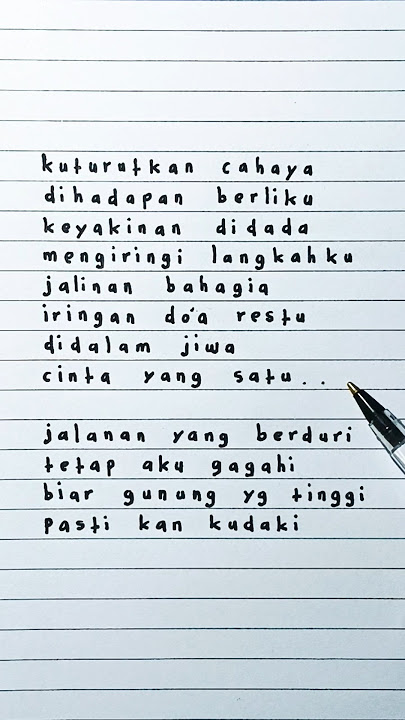 kuturutkan cahaya
dihadapan berliku
keyakinan didada
mengiringi langkahku
jalinan bahagia
iringan do'a restu
didalam jiwa
cinta yang satu..
jalanan yang berduri
tetap aku gagahi
biar gunung yg tinggi
pasti kan kudaki